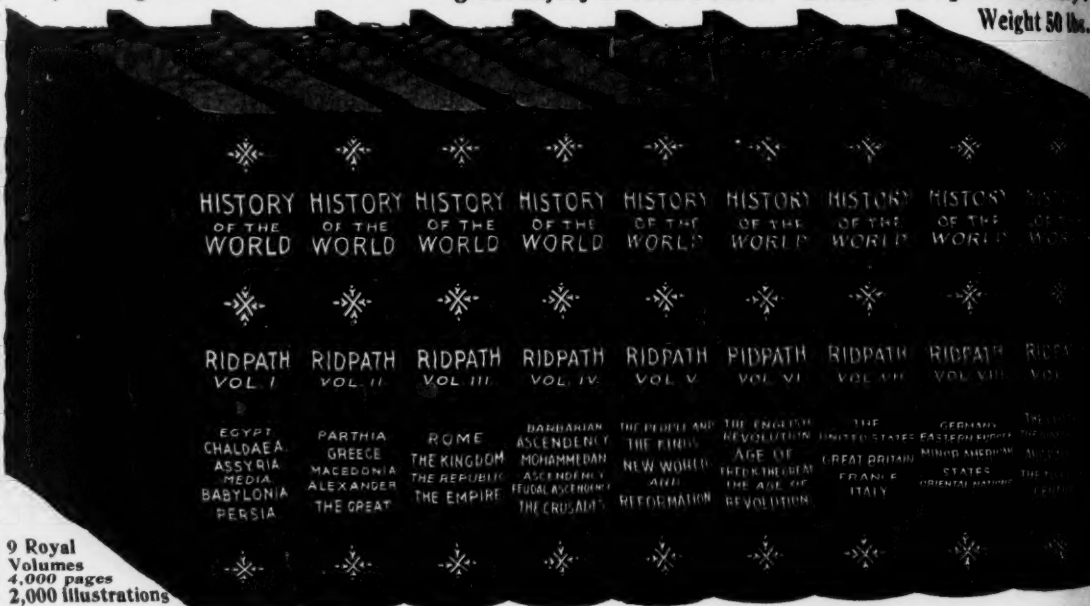 Weight 50 lbs.
HISTORY
OF THE
WORLD
RIDPATH
VOL. I
EGYPT
CHALDAEA.
ASSYRIA
MEDIA
BABYLONIA
PERSIA
HISTORY
OF THE
WORLD
RIDPATH
VOL. II
PARTHIA
GREECE
MACEDONIA
ALEXANDER
THE GREAT
HISTORY
OF THE
WORLD
RIDPATH
VOL. III.
ROME
THE KINGDOM
THE REPUBLIC
THE EMPIRE
HISTORY
OF THE
WORLD
RIDPATH
VOL. IV.
BARBARIAN
ASCENDENCY
MOHAMMEDAN
ASCENDENCY
FEUDAL ASCENDENCY
THE CRUSADES
HISTORY
OF THE
WORLD
RIDPATH
VOL. V
THE PEOPLE AND
THE KINGS
NEW WORLD
AND
REFORMATION
HISTORY
OF THE
WORLD
RIDPATH
VOL. VI
THE ENGLISH
REVOLUTION
AGE OF
FREDK THE GREAT
THE AGE OF
REVOLUTION
HISTORY
OF THE
WORLD
RIDPATH
VOL. VII
THE
UNITED STATES
GREAT BRITAIN
FRANCE
ITALY
HISTORY
OF THE
WORLD
RIDPATH
VOL. VIII
GERMANY
EASTERN EUROPE
MINOR AMERICAN
STATES
ORIENTAL NATIONS
9 Royal
Volumes
4,000 pages
2,000 illustrations